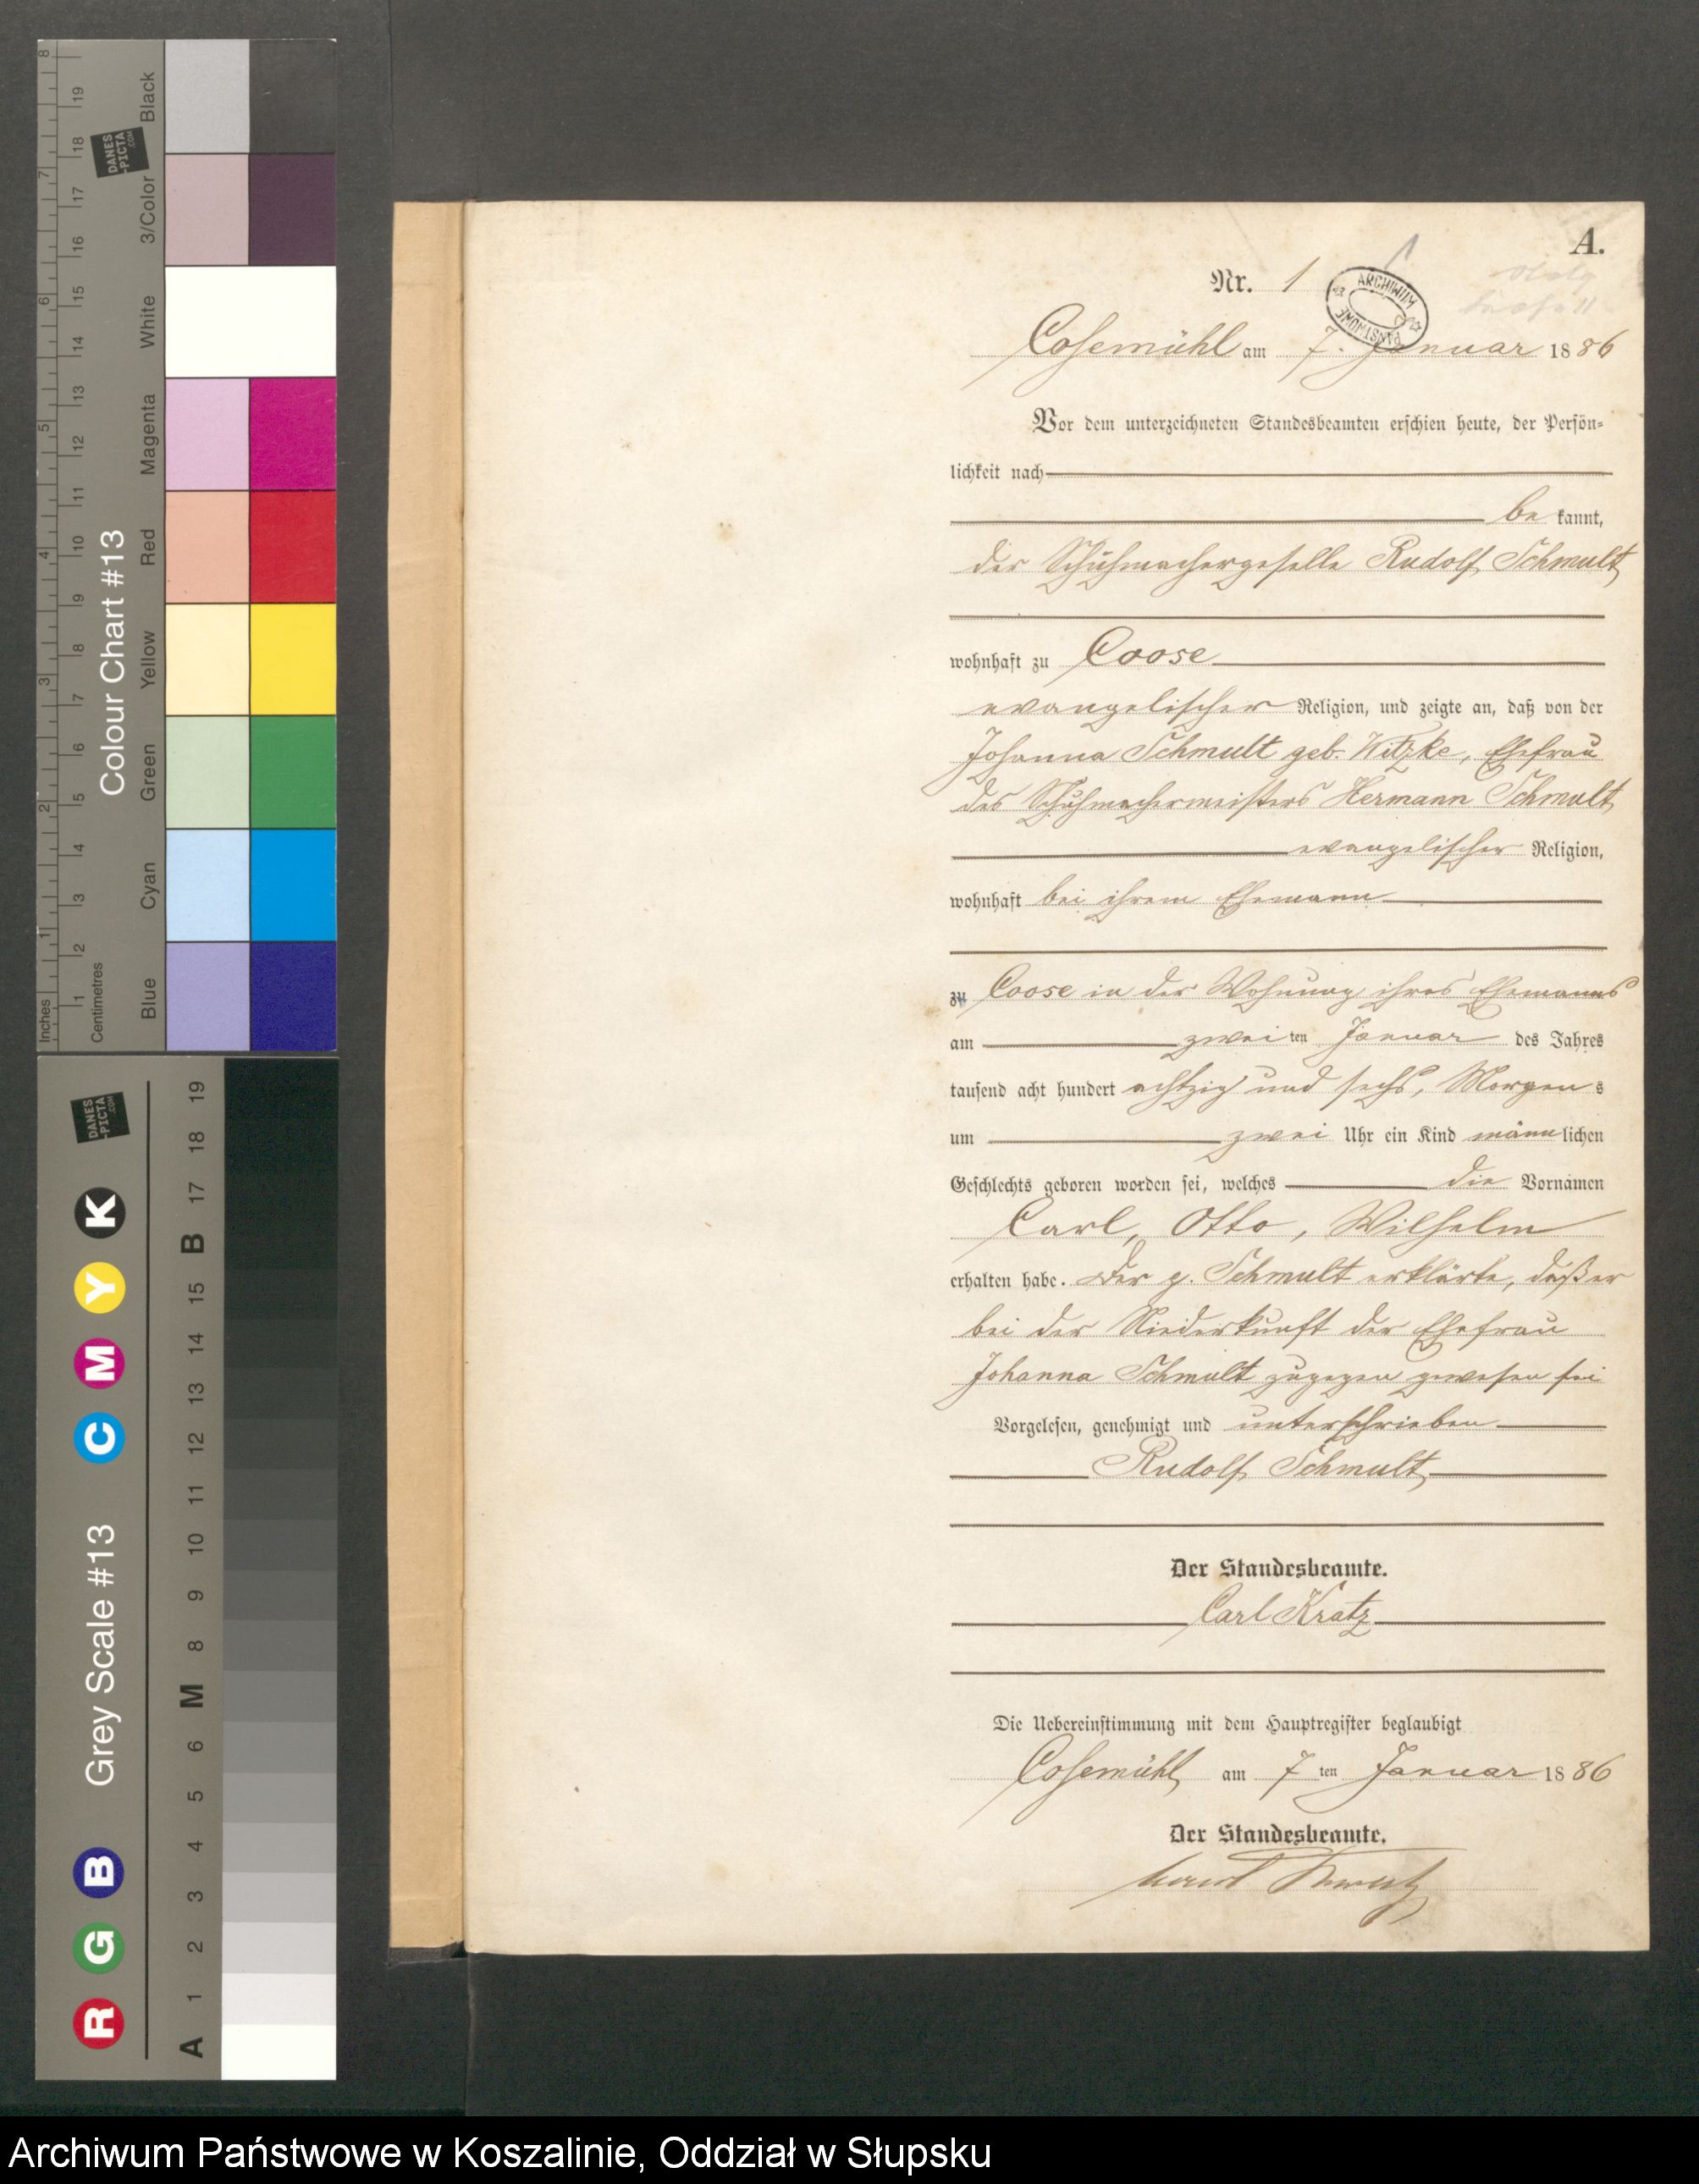 A.
Nr. 1
ARCHIWUM PAŃSTWOWE
Cosemühl am 7. Januar 1886
Vor dem unterzeichneten Standesbeamten erschien heute, der Persön-
lichkeit nach
be kannt,
der Schuhmachergeselle Rudolf Schmult
wohnhaft zu Coose
evangelischer Religion, und zeigte an, daß von der
Johanna Schmult geb. Witzke, Ehefrau
des Schuhmachermeisters Hermann Schmult
evangelischer Religion,
wohnhaft bei ihrem Ehemann
zu Coose in der Wohnung ihres Ehemanns
am zwei ten Januar des Jahres
tausend acht hundert achtzig und sechs, Morgen s
um zwei Uhr ein Kind männlichen
Geschlechts geboren worden sei, welches die Vornamen
Carl, Otto, Wilhelm
erhalten habe. Der p. Schmult erklärte, daß er
bei der Niederkunft der Ehefrau
Johanna Schmult zugegen gewesen sei
Vorgelesen, genehmigt und unterschrieben
Rudolf Schmult
Der Standesbeamte.
Carl Kratz
Die Uebereinstimmung mit dem Hauptregister beglaubigt
Cosemühl am 7 ten Januar 1886
Der Standesbeamte.
Inches 1 2 3 4 5 6 7 8
Centimetres 1 2 3 4 5 6 7 8 9 10 11 12 13 14 15 16 17 18 19
Colour Chart #13
Blue Cyan Green Yellow Red Magenta White 3/Color Black
DANES-PICTA.COM
Grey Scale #13
R G B C M Y K
A 1 2 3 4 5 6 M 8 9 10 11 12 13 14 15 B 17 18 19
DANES-PICTA.COM
Archiwum Państwowe w Koszalinie, Oddział w Słupsku